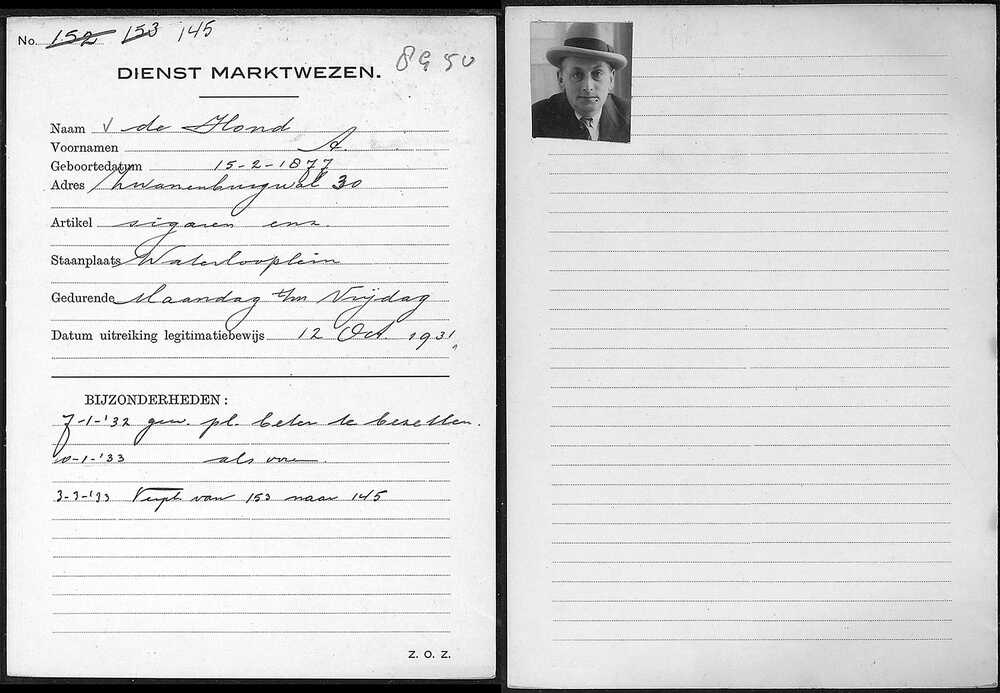 No. 152 153 145
8950
DIENST MARKTWEZEN.
Naam V de Hond
Voornamen A.
Geboortedatum 15-2-1877
Adres Zwanenburgwal 30
Artikel sigaren enz.
Staanplaats Waterlooplein
Gedurende Maandag t/m Vrijdag
Datum uitreiking legitimatiebewijs 12 Oct. 1931.
BIJZONDERHEDEN:
7-1-'32 gew. pl. beter te bezetten.
10-1-'33 als voren.
3-3-'33 Verpl. van 153 naar 145
Z. O. Z.